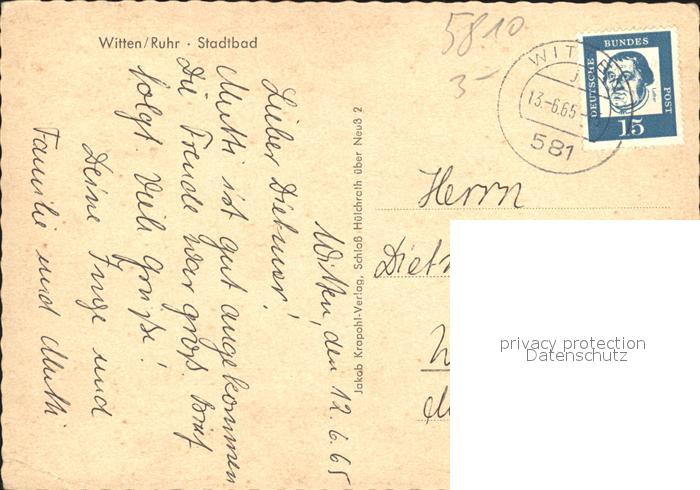 Witten/Ruhr · Stadtbad
Witten, den 12.6.65
Lieber Dietmar!
Mutti ist gut angekommen
Die Freude war groß. Brief
folgt. Viele Grüße!
Deine Inge und
Familie und Mutti
Jakob Krapohl-Verlag, Schloß Hülchrath über Neuß 2
5810
3-
WITTEN
13.-6.65
581
DEUTSCHE
BUNDES
POST
Luther
15
Herrn
Diet
privacy protection
Datenschutz